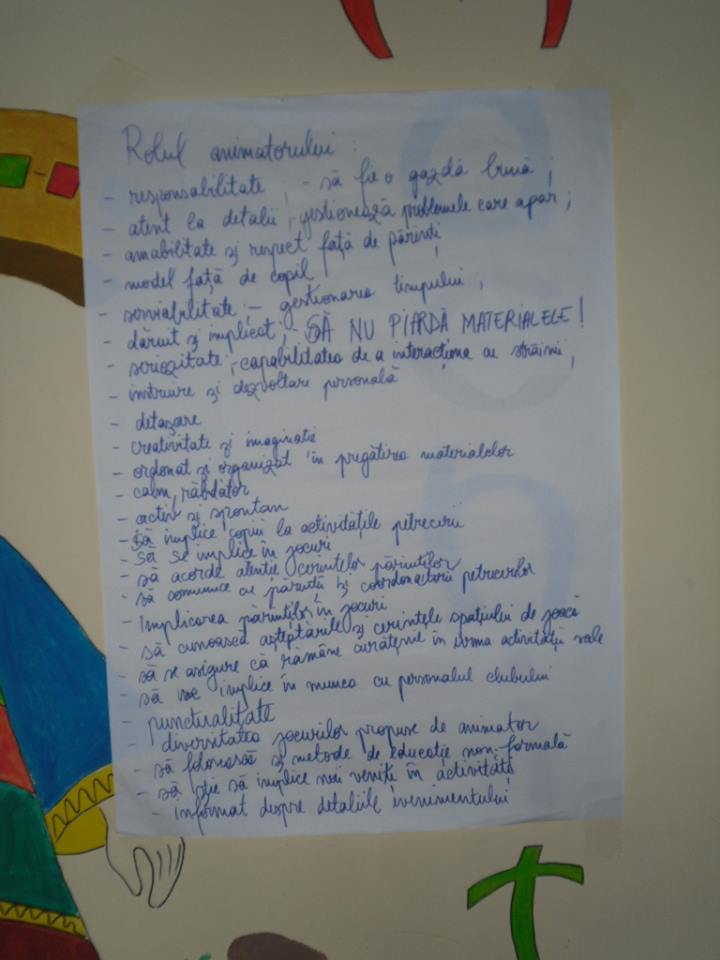 Rolul animatorului :
- responsabilitate ; - să fie o gazdă bună ;
- atent la detalii ; gestionează problemele care apar ;
- amabilitate și respect față de părinți
- model față de copil ;
- serviabilitate ; - gestionarea timpului ;
- dăruit și implicat ; - SĂ NU PIARDĂ MATERIALELE !
- seriozitate ; capabilitatea de a interacționa cu străinii ;
- instruire și dezvoltare personală
- detașare
- creativitate și imaginatie
- ordonat și organizat în pregătirea materialelor
- calm, răbdător
- activ și spontan
- să implice copiii la activitățile petrecerii
- să se implice în jocuri
- să acorde atenție cerintelor părinților
- să comunice cu părinții și coordonatorii petrecerilor
- Implicarea părinților în jocuri
- să cunoască așteptările și cerințele spațiului de joacă
- să se asigure că rămâne curățenie în urma activității sale
- să se implice în munca cu personalul clubului
- punctualitate
- diversitatea jocurilor propuse de animator
- să folosească și metode de educație non-formală
- să știe să implice noii veniți în activități
- informat despre detaliile evenimentului